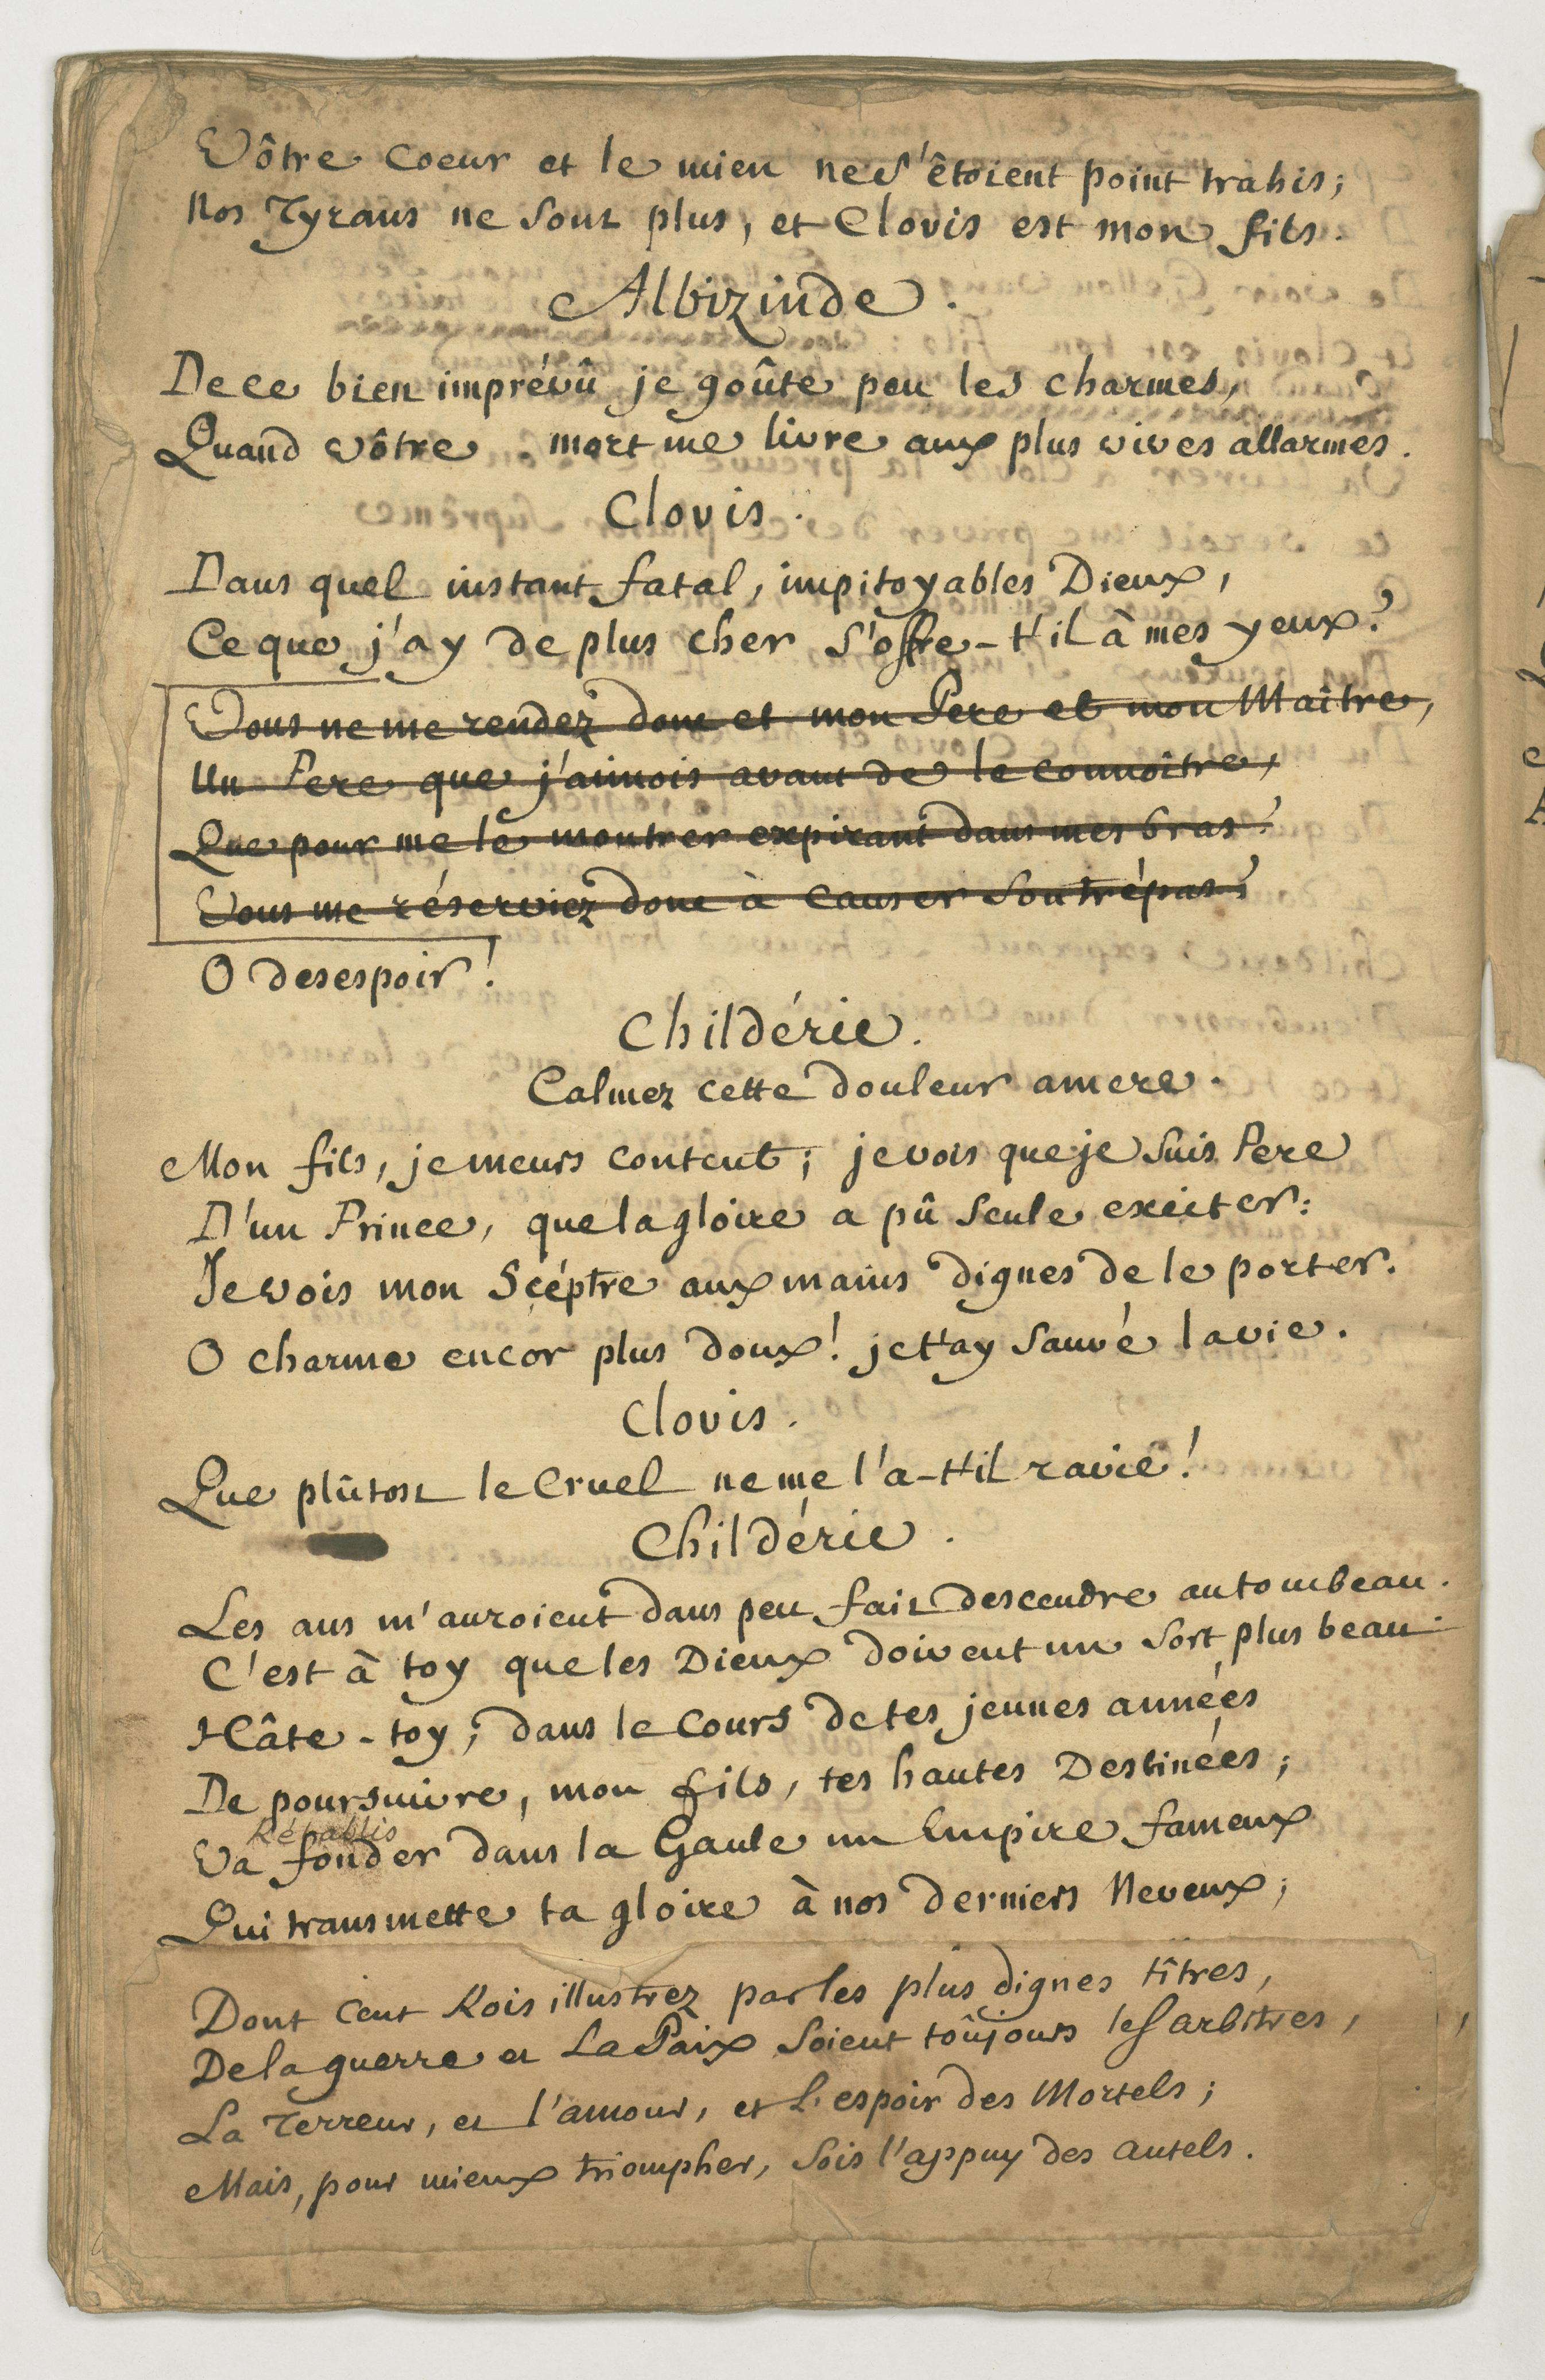 Vôtre coeur et le mien ne s'étoient point trahis;
Nos Tyrans ne sont plus, et Clovis est mon fils.
Albizinde.
De ce bien imprévû je goûte peu les charmes,
Quand vôtre mort me livre aux plus vives allarmes.
Clovis.
Dans quel instant fatal, impitoyables Dieux,
Ce que j'ay de plus cher s'offre-t'il à mes yeux?
Vous ne me rendez donc et mon Pere et mon Maître,
Un Pere que j'aimois avant de le connoître,
Que pour me le montrer expirant dans mes bras?
Vous me réserviez donc à causer son trépas?
O desespoir!
Childéric.
Calmez cette douleur amere.
Mon fils, je meurs content; je vois que je suis Pere
D'un Prince, que la gloire a pû seule exciter:
Je vois mon Scéptre aux mains dignes de le porter.
O charme encor plus doux! je t'ay sauvé la vie.
Clovis.
Que plûtost le Cruel ne me l'a-t'il ravie!
Childéric.
Les ans m'auroient dans peu fait descendre au tombeau.
C'est à toy que les Dieux doivent un sort plus beau.
Hâte-toy, dans le cours de tes jeunes années
De poursuivre, mon fils, tes hautes Destinées;
Rétablis
Va fonder dans la Gaule un Empire fameux
Qui transmette ta gloire à nos derniers Neveux;
Dont cent Rois illustrez par les plus dignes tîtres,
De la guerre et la Paix soient toûjours les arbitres,
La Terreur, et l'amour, et l'espoir des Mortels;
Mais, pour mieux triompher, sois l'appuy des autels.